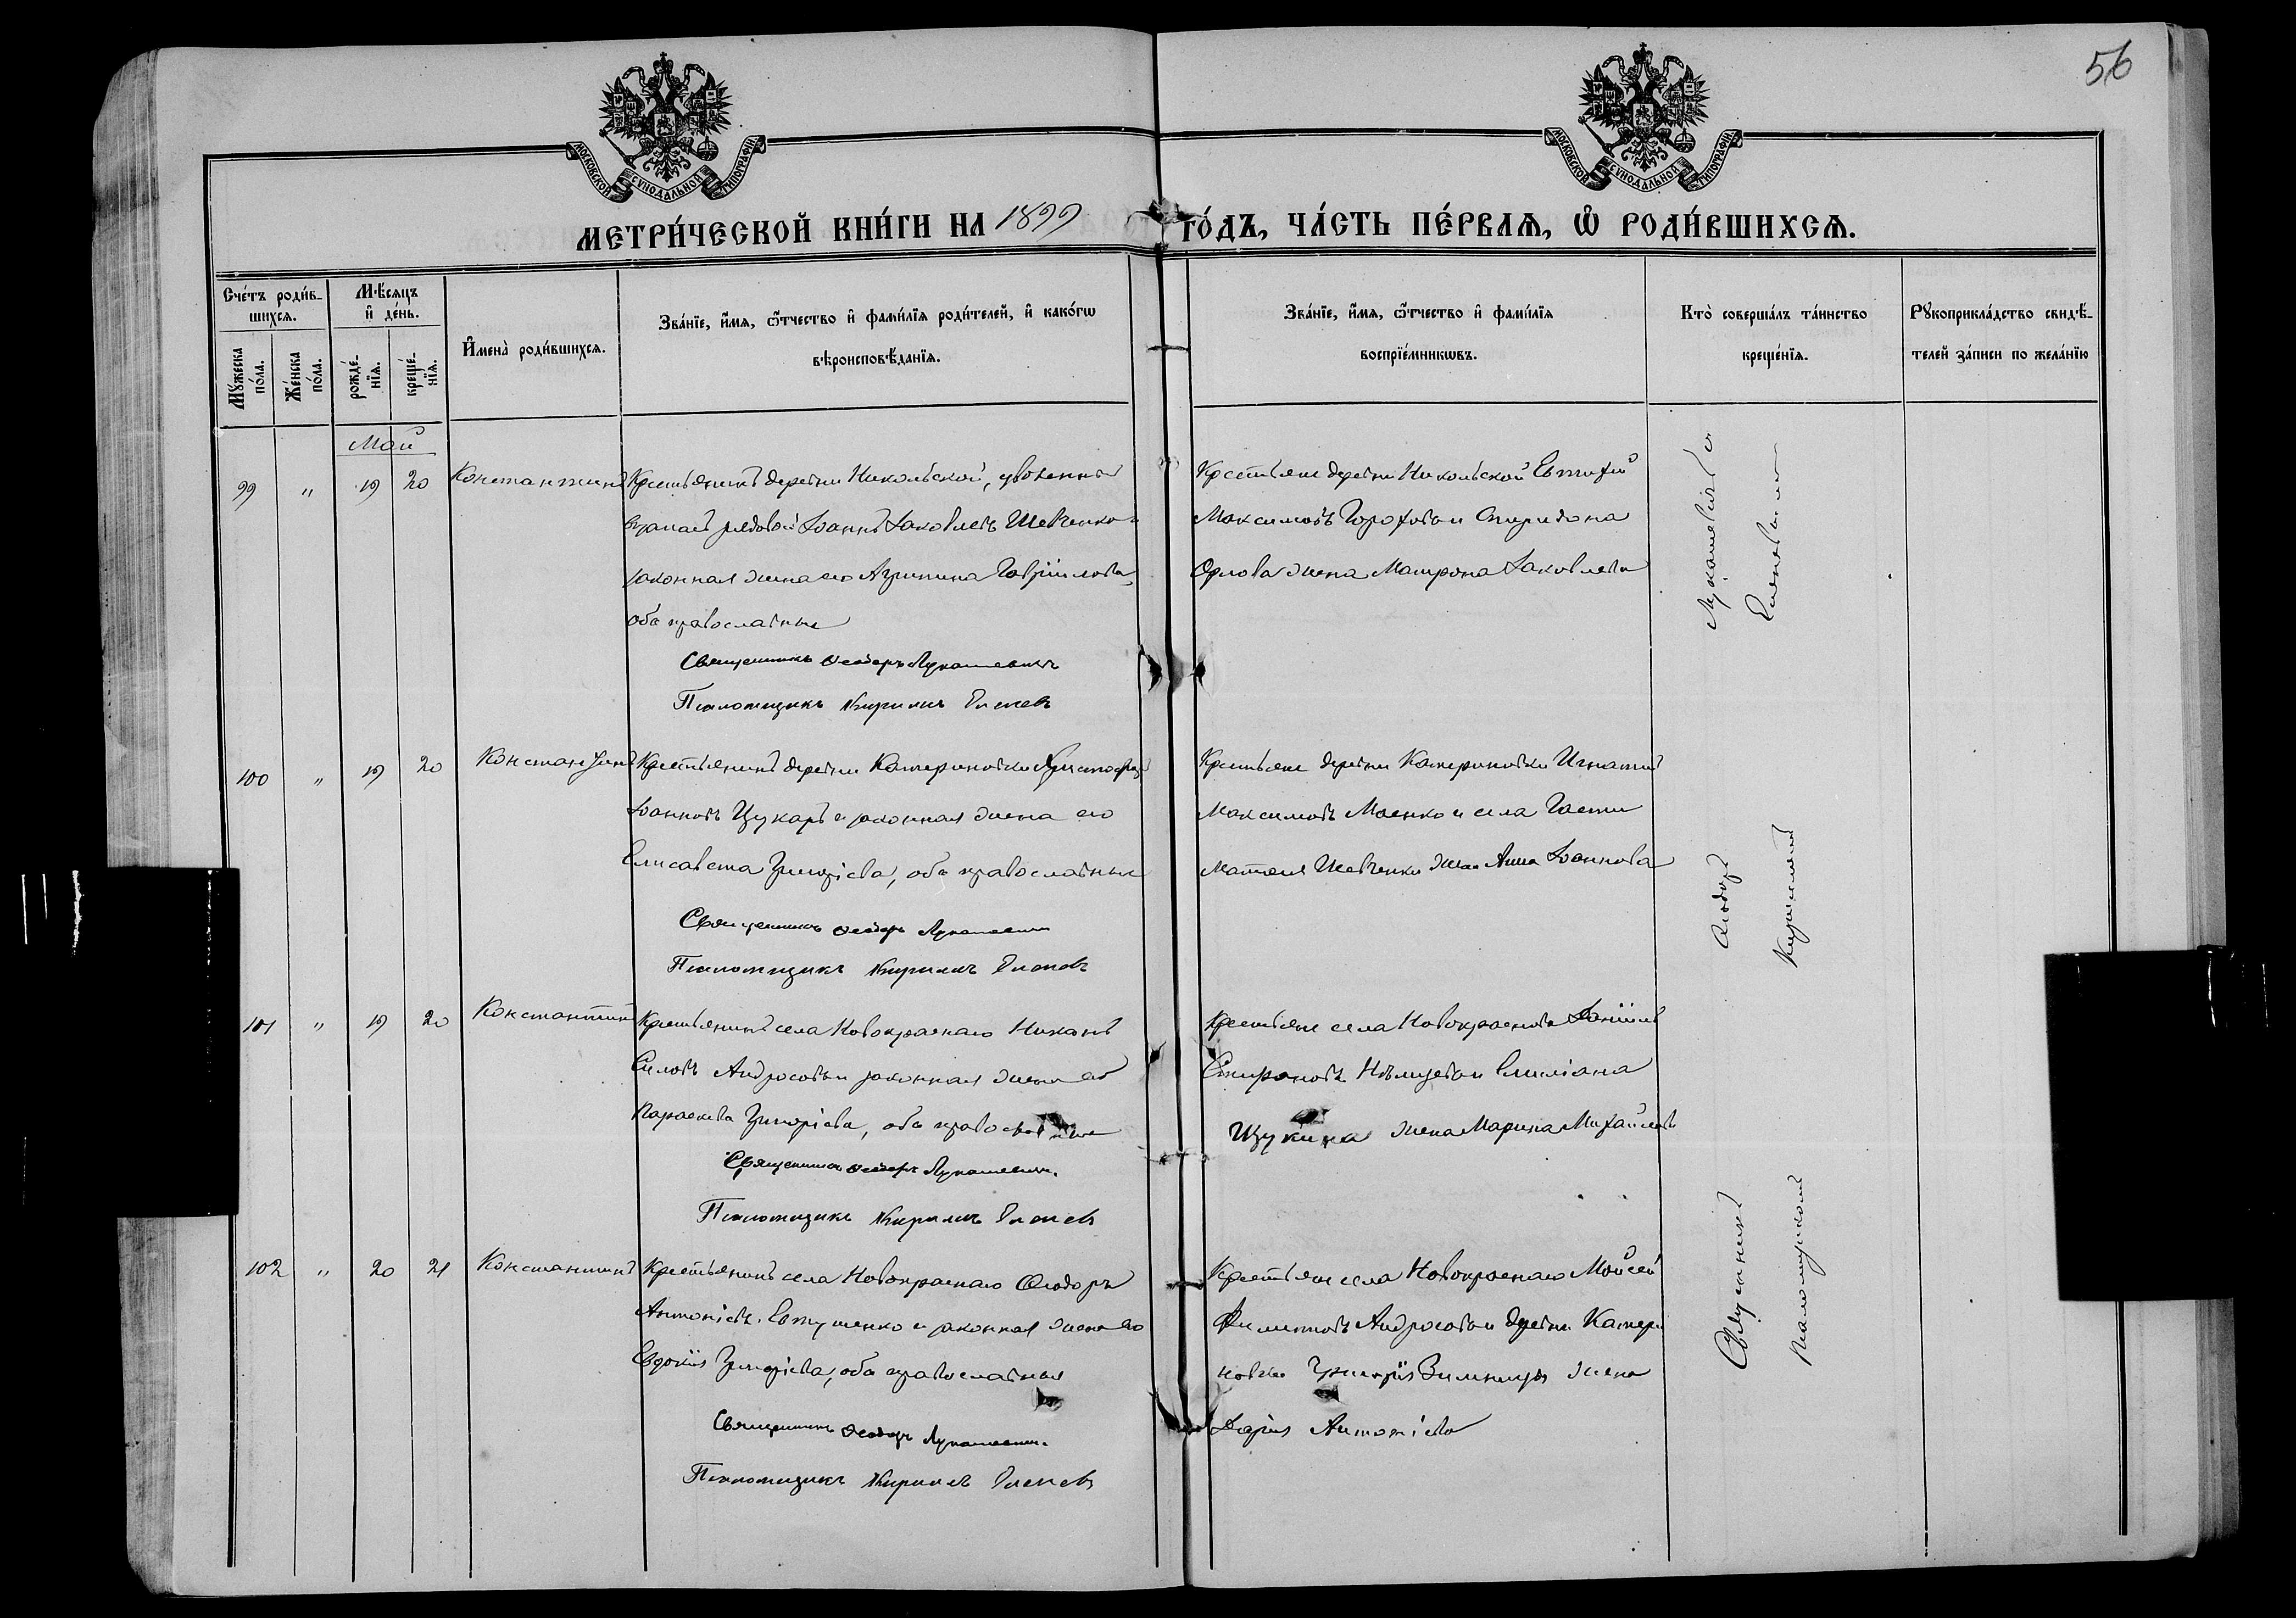 56
МОСКОВСКОЙ СѴНОДАЛЬНОЙ ТИПОГРАФІИ
МОСКОВСКОЙ СѴНОДАЛЬНОЙ ТИПОГРАФІИ
МЕТРИ́ЧЕСКОЙ КНИ́ГИ НА 1899 ГО́ДЪ, ЧА́СТЬ ПЕ́РВАѦ, Ѡ҆ РОДИ́ВШИХСѦ.
Сче́тъ роди́в-
шихсѧ.
Мꙋ́жеска по́ла.
Же́нска по́ла.
Мѣ́сѧцъ и҆ де́нь.
рожде́-нїѧ.
креще́-нїѧ.
И҆мена̀ роди́вшихсѧ.
Зва́нїе, и҆́мѧ, ѻ҆́тчество и҆ фами́лїѧ роди́телей, и҆ како́гѡ
вѣроисповѣ́данїѧ.
Зва́нїе, и҆́мѧ, ѻ҆́тчество и҆ фами́лїѧ
воспрїе́мникѡвъ.
Кто̀ соверша́лъ та́инство
креще́нїѧ.
Рꙋкоприкла́дство свидѣ́-
телей за́писи по жела́нїю
Май
99 " 19 20 Константинъ
Крестьянинъ деревни Никольской, уволенный
въ запасъ рядовой Іоаннъ Іаковлевъ Шевченко и
законная жена его Агрипина Гавріилова,
оба православные
Священникъ Ѳеодоръ Лукашевичъ
Псаломщикъ Кириллъ
Крестьяне деревни Никольской Евтихій
Максимовъ Гороховъ и Спиридона
Орлова жена Матрона Іаковлева
100 " 19 20 Константинъ
Крестьянинъ деревни Катериновки Христофоръ
Іоанновъ Цукаръ и законная жена его
Елисавета Григоріева, оба православные
Священникъ Ѳеодоръ Лукашевичъ
Псаломщикъ Кириллъ
Крестьяне деревни Катериновки Игнатій
Максимовъ Моенко и села
Шевченки жена Анна Іоаннова
101 " 19 20 Константинъ
Крестьянинъ села Новокраснаго
Силовъ Андросовъ и законная жена его
Параскева Григоріева, оба православные
Священникъ Ѳеодоръ Лукашевичъ.
Псаломщикъ Кириллъ
Крестьяне села Новокраснаго Даніилъ
Нѣмцевъ и Емиліана
Щукина жена Марина Михайлова
102 " 20 21 Константинъ
Крестьянинъ села Новокраснаго Ѳеодоръ
Антоніевъ Евтушенко и законная жена его
Евдокія Григоріева, оба православные
Священникъ Ѳеодоръ Лукашевичъ.
Псаломщикъ Кириллъ
Крестьяне села Новокраснаго Мойсей
Филиповъ Андросовъ и деревни Катери
новки Григорія жена
Дарія Антоніева
Священникъ Ѳеодоръ Лукашевичъ съ
псаломщикомъ Кирилломъ